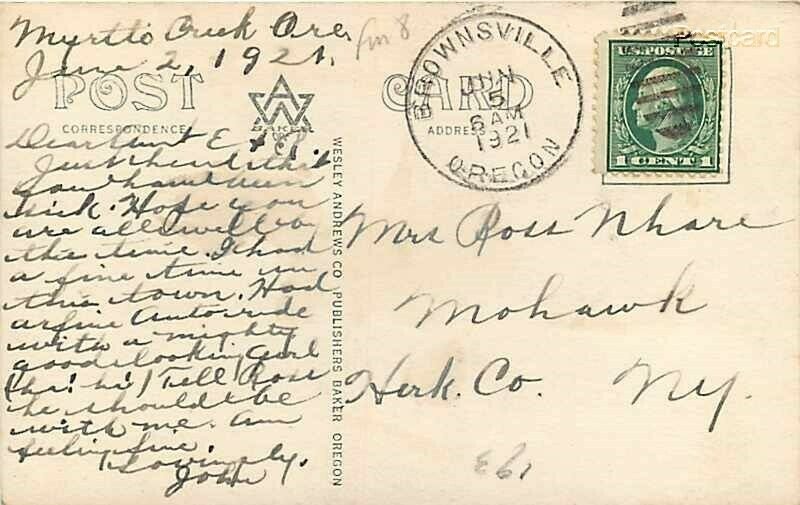 Myrtle Creek Ore.
June 2, 1921.
fm 8
POST CARD
CORRESPONDENCE
BAKER
ADDRESS
BROWNSVILLE
JUN
5
6 AM
1921
OREGON
U.S. POSTAGE
1 CENT 1
postcard
Dear Aunt E
Just heard that
you have been
sick. Hope you
are all well by
this time. I had
a fine time in
this town. Had
a fine Auto ride
with a mighty
good looking girl
(ha! hi!) Tell Ross
he should be
with me. Am
feeling fine.
Lovingly.
John
WESLEY ANDREWS CO PUBLISHERS BAKER OREGON
Mrs Ross Nhare
Mohawk
Herk. Co. NY.